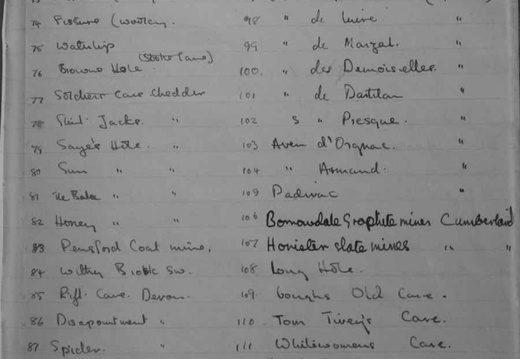 74 Fissure (Wookey.
75 Waterlip
76 Browns Hole. (Stoke Lane)
77 Soldiers Cave Cheddar
78 Flint Jacks. "
79 Sayes Hole. "
80 Sun " "
81 " "
82 Honey " "
83 Pensford Coal mine.
84 Withy Brook Sw.
85 Rift Cave. Devon.
86 Disapointment "
87 Spider.
98 " de "
99 " de Marzal. "
100. " des Demoiselles. "
101 " de "
102 " Presque. "
103 Aven d'Orgnac. "
104 " Armand. "
105 Padirac "
106 Borrowdale Graphite mines Cumberland
107 Honister slate mines " "
108 Long Hole.
109. Goughs Old Cave.
110. Tom Tivey's Cave.
111 Whitewomens Cave.